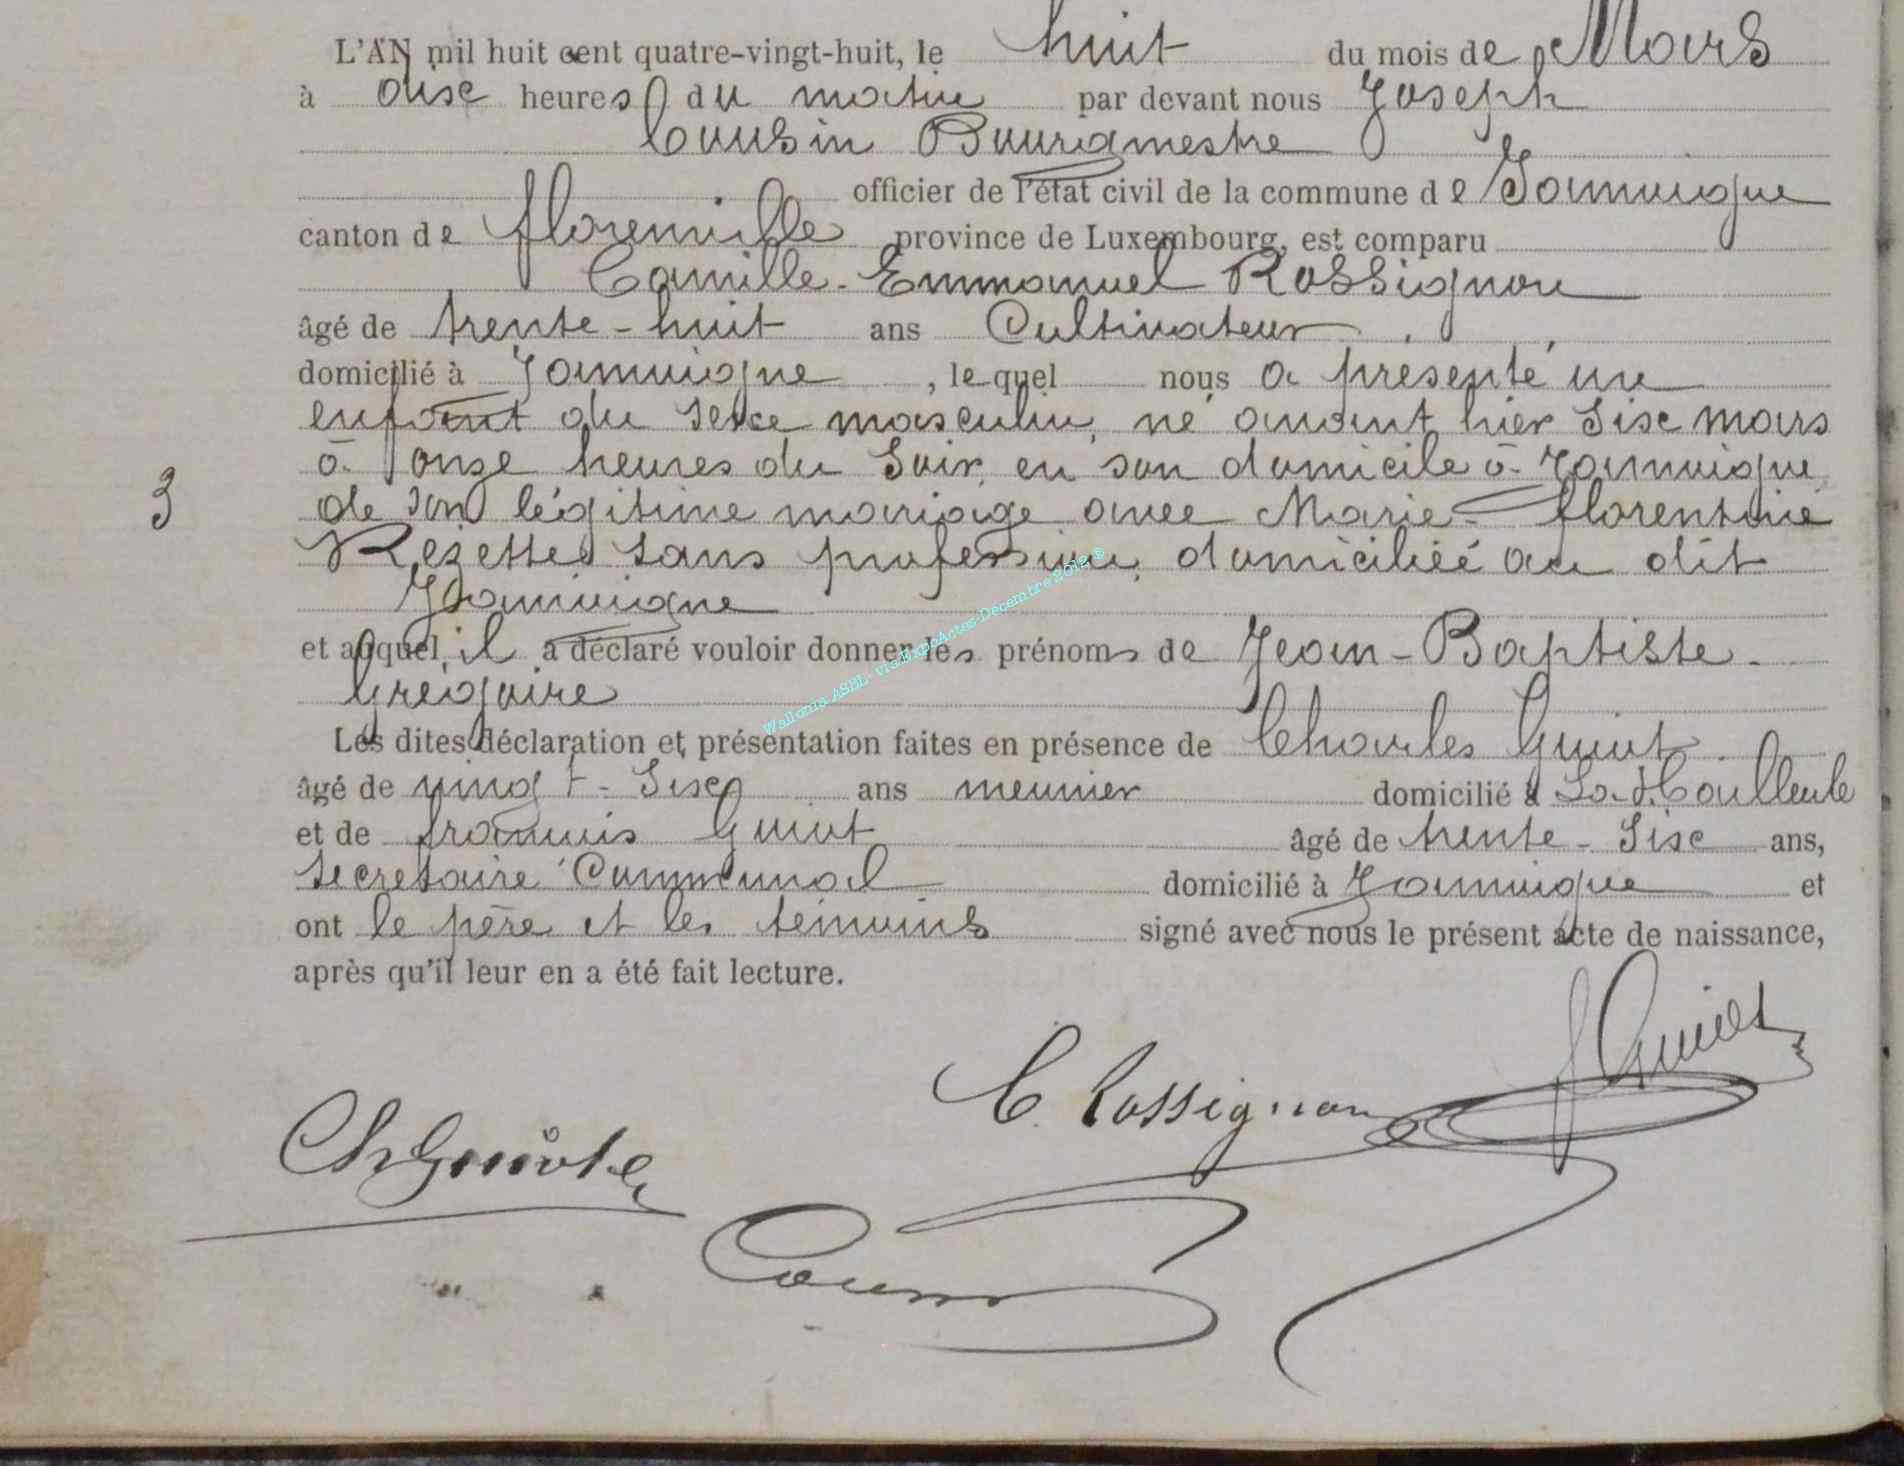 L'AN mil huit cent quatre-vingt-huit, le huit du mois de Mars
à dise heures du matin par devant nous Joseph
Cousin Bourgmestre
officier de l'état civil de la commune de Jamoigne
canton de florenville province de Luxembourg, est comparu
Camille-Emmanuel Rossignon
âgé de trente-huit ans Cultivateur
domicilié à Jamoigne, lequel nous a présenté un
enfant du sexe masculin, né avant hier sise mars
à onze heures du soir, en son domicile à Jamoigne
3
de son légitime mariage avec Marie-florentine
Rezette sans profession, domiciliée au dit
Jamoigne
et auquel il a déclaré vouloir donner les prénoms de Jean-Baptiste-
Grégoire
Les dites déclaration et présentation faites en présence de Charles Guiot
âgé de vingt-sise ans meunier domicilié à
et de françois Guiot âgé de trente-sise ans,
secrétaire Communal domicilié à Jamoigne et
ont le père et les témoins signé avec nous le présent acte de naissance,
après qu'il leur en a été fait lecture.
f Guiot
C. Rossignon
Ch Guiot
Cousin
Wallonia ASBL - via ExpoActes-Décembre 2012 ®